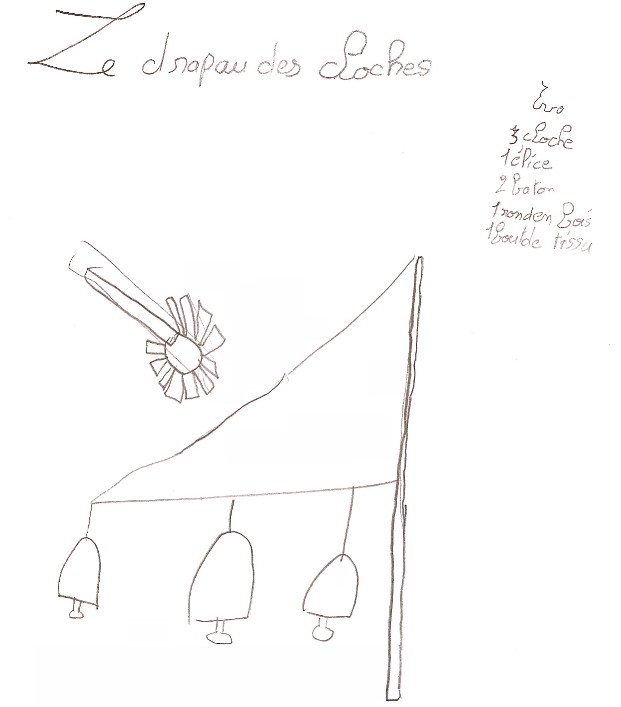 Le drapau des cloches
3 cloche
1 élice
2 baton
1 rond en bois
1 bout de tissu